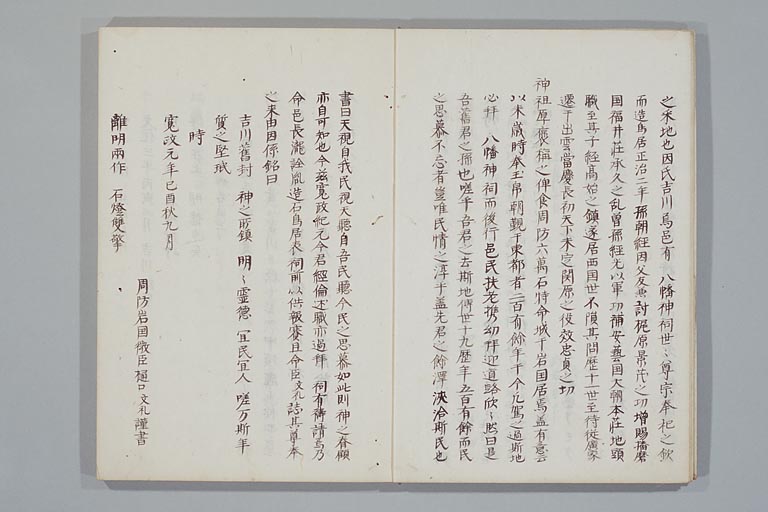 之采地也因氏吉川焉邑有 八幡神祠世〻尊宗奉祀之欽
而造鳥居正治二年孫朝經因父友兼討梶原景茂之功増賜播磨
國福井莊承久之乱曽孫經光以軍功補安藝國大朝本莊地頭
職至其子經高始之鎮遂居西国世不復其間歴十一世至侍從廣家
遷于出雲當慶長初天下未定関原之役效忠貞之功
神祖厚褒稱之俾食周防六萬石特命城于岩国居焉蓋有
以来歳時奉玉帛朝覲于東都者二百有餘年于今凡駕之過斯地
必拜 八幡神祠而後行邑民扶老携幼拜迎道路欣〻然曰是
吾舊君之孫也嗟乎吾君之去斯地傳世十九歴年五百有餘而民
之思慕不忘者豈唯民情之淳乎蓋先君之餘澤浹洽斯民也
書曰天視自我民視天聽自吾民聽今民之思慕如此則神之眷顧
亦自可知也今茲寛政紀元今君經倫述職亦過拜 祠有祷請焉乃
命邑長瀧詮胤造石鳥居表祠前以供報賽且命臣文礼誌其尊奉
之来由因係銘曰
吉川舊封 神之攸鎮 明〻靈德 宜民宜人 嗟万斯年
質之堅珉
時
寛政元年己酉秋九月
周防岩国徴臣樋口文礼謹書
離明兩作 石燈雙擎